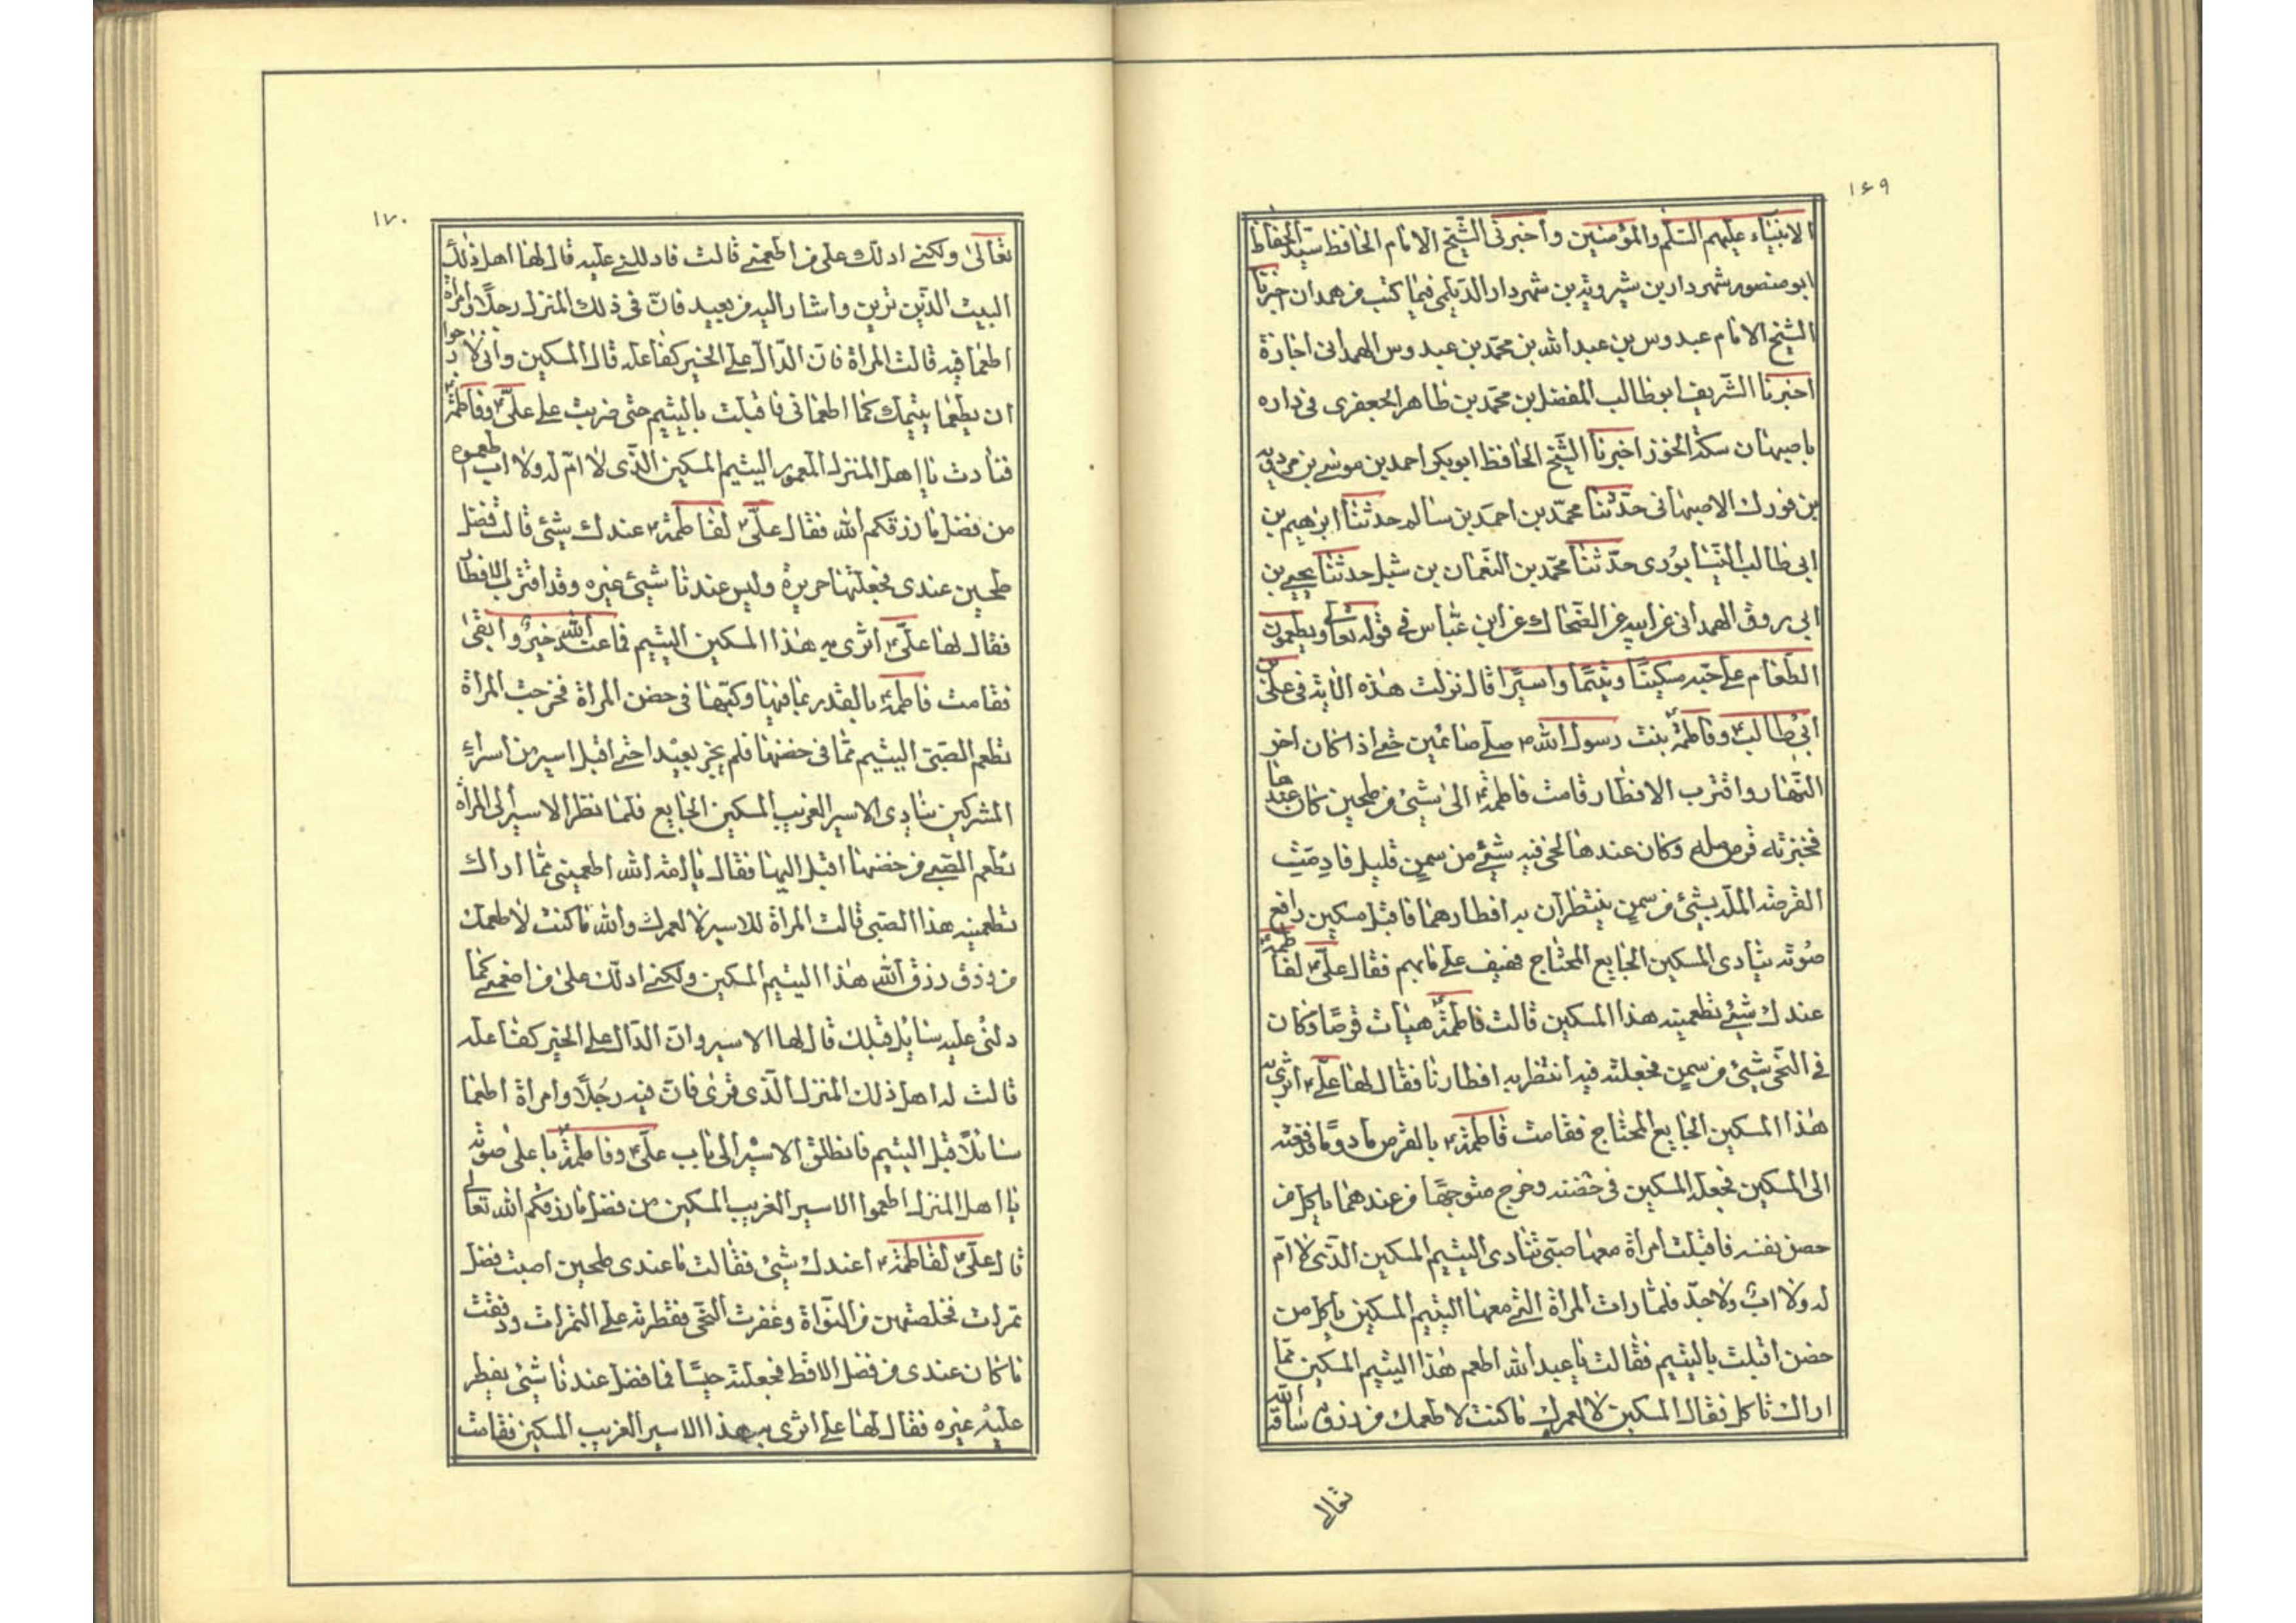 ۱۶۹
الانبياء عليهم السلم والمؤمنين وأخبرنى الشيخ الامام الحافظ سيد الحفاظ
ابو منصور شهردار بن شيرويه بن شهردار الديلمى فيما كتب من همدان اخبرنا
الشيخ الامام عبدوس بن عبد الله بن محمد بن عبدوس الهمدانى اجازة
اخبرنا الشريف ابو طالب المفضل بن محمد بن طاهر الجعفرى فى داره
باصبهان سكة الخوز اخبرنا الشيخ الحافظ ابو بكر احمد بن موسى بن مردويه
بن فورك الاصبهانى حدثنا محمد بن احمد بن سالم حدثنا ابرهيم بن
ابى طالب النيسابورى حدثنا محمد بن النعمان بن شبل حدثنا يحيى بن
ابى روق الهمدانى عن ابيه عن الضحاك عن ابن عباس فى قوله تعالى ويطعمون
الطعام على حبه مسكينا ويتيما واسيرا قال نزلت هذه الاية فى على بن
ابى طالب وفاطمة بنت رسول الله صلى صائمين حتى اذا كان اخر
النهار واقترب الافطار قامت فاطمة الى شئ من طحين كان عندها
فخبزته قرص مله وكان عندها نحى فيه شئ من سمن قليل فادمت
القرصة الملة بشئ من سمن ينتظران به افطارهما فاقبل مسكين رافع
صوته ينادى المسكين الجايع المحتاج فهتف على بابهم فقال على لفاطمة
عندك شئ تطعمينه هذا المسكين قالت فاطمة هيأت قرصا وكان
فى النحى شئ من سمن فجعلته فيه انتظر به افطارنا فقال لها على اثرى به
هذا المسكين الجايع المحتاج فقامت فاطمة بالقرص مادوما فدفعته
الى المسكين فجعله المسكين فى حضنه وخرج متوجها من عندهما ياكل من
حضن نفسه فاقبلت امرأة معها صبى تنادى اليتيم المسكين الذى لا ام
له ولا اب ولا جد فلما رات المرأة التى معها اليتيم المسكين ياكل من
حضن اقبلت باليتيم فقالت يا عبد الله اطعم هذا اليتيم المسكين مما
اراك تاكل فقال المسكين لا لعمرك ما كنت لاطعمك من رزق ساقه الله
تعالى
۱۷۰
تعالى ولكنى ادلك على من اطعمنى قالت فادللنى عليه قال لها اهل ذلك
البيت الذين ترين واشار اليه من بعيد فان فى ذلك المنزل رجلا وامرأة
اطعما فيه قالت المراة فان الدال على الخير كفاعله قال المسكين وانى لارجوا
ان يطعما يتيمك كما اطعمانى فاقبلت باليتيم حتى ضربت على على وفاطمة
فنادت يا اهل المنزل المعمور اليتيم المسكين الذى لا ام له ولا اب اطعموه
من فضل ما رزقكم الله فقال على لفاطمة عندك شئ قالت فضل
طحين عندى فجعلتها حريرة وليس عندنا شئ غيره وقد اقترب الافطار
فقال لها على اثرى به هذا المسكين اليتيم فما عند الله خير وابقى
فقامت فاطمة بالقدر بما فيها وكبتها فى حضن المراة فخرجت المراة
تطعم الصبى اليتيم مما فى حضنها فلم يجز بعيدا حتى اقبل اسير من اسراء
المشركين ينادى الاسير الغريب المسكين الجايع فلما نظر الاسير الى المراة
تطعم الصبى من حضنها اقبل اليها فقال يا امة الله اطعمينى مما اراك
تطعمينه هذا الصبى قالت المراة للاسير لا لعمرك والله ما كنت لاطعمك
من رزق رزق الله هذا اليتيم المسكين ولكنى ادلك على من اطعمنى كما
دلنى عليه سائل قبلك قال لها الاسير وان الدال على الخير كفاعله
قالت له اهل ذلك المنزل الذى ترى فان فيه رجلا وامراة اطعما
سائلا قبل اليتيم فانطلق الاسير الى باب على وفاطمة باعلى صوته
يا اهل المنزل اطعموا الاسير الغريب المسكين من فضل ما رزقكم الله تعالى
قال على لفاطمة اعندك شئ فقالت ما عندى طحين اصبت فضل
تمرات فخلصتهن من النواة وعفرت النحى فقطرته على التمرات ودققت
ما كان عندى من فضل الاقط فجعلته حيسا فما فضل عندنا شئ نفطر
عليه غيره فقال لها على اثرى به هذا الاسير الغريب المسكين فقامت